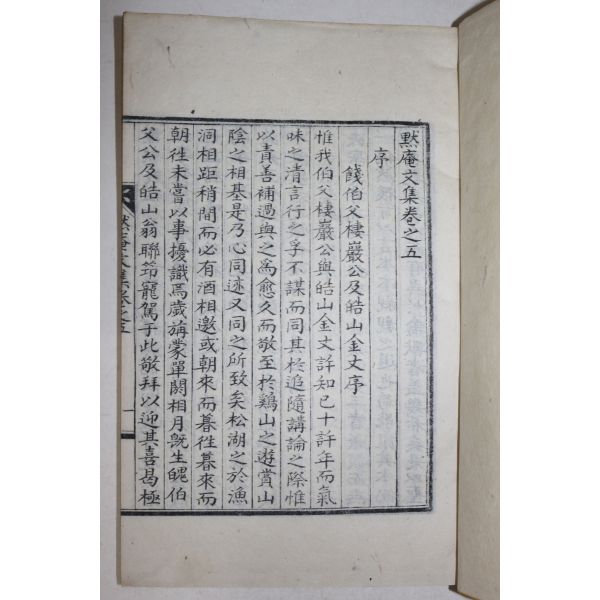 默庵文集卷之五
序
餞伯父棲巖公及皓山金丈序
惟我伯父棲巖公與皓山金丈許知已十許年而氣
味之清言行之孚不謀而同其於追隨講論之際惟
以責善補過與之爲愈久而敬至於鷄山之遊賞山
陰之相基是乃心同迹又同之所致矣松湖之於漁
洞相距稍間而必有酒相邀或朝來而暮徃暮來而
朝徃未嘗以事擾識焉歲旃蒙單閼相月旣生魄伯
父公及皓山翁聯筇寵駕于此敬拜以迎其喜曷極
默庵文集卷之五
一